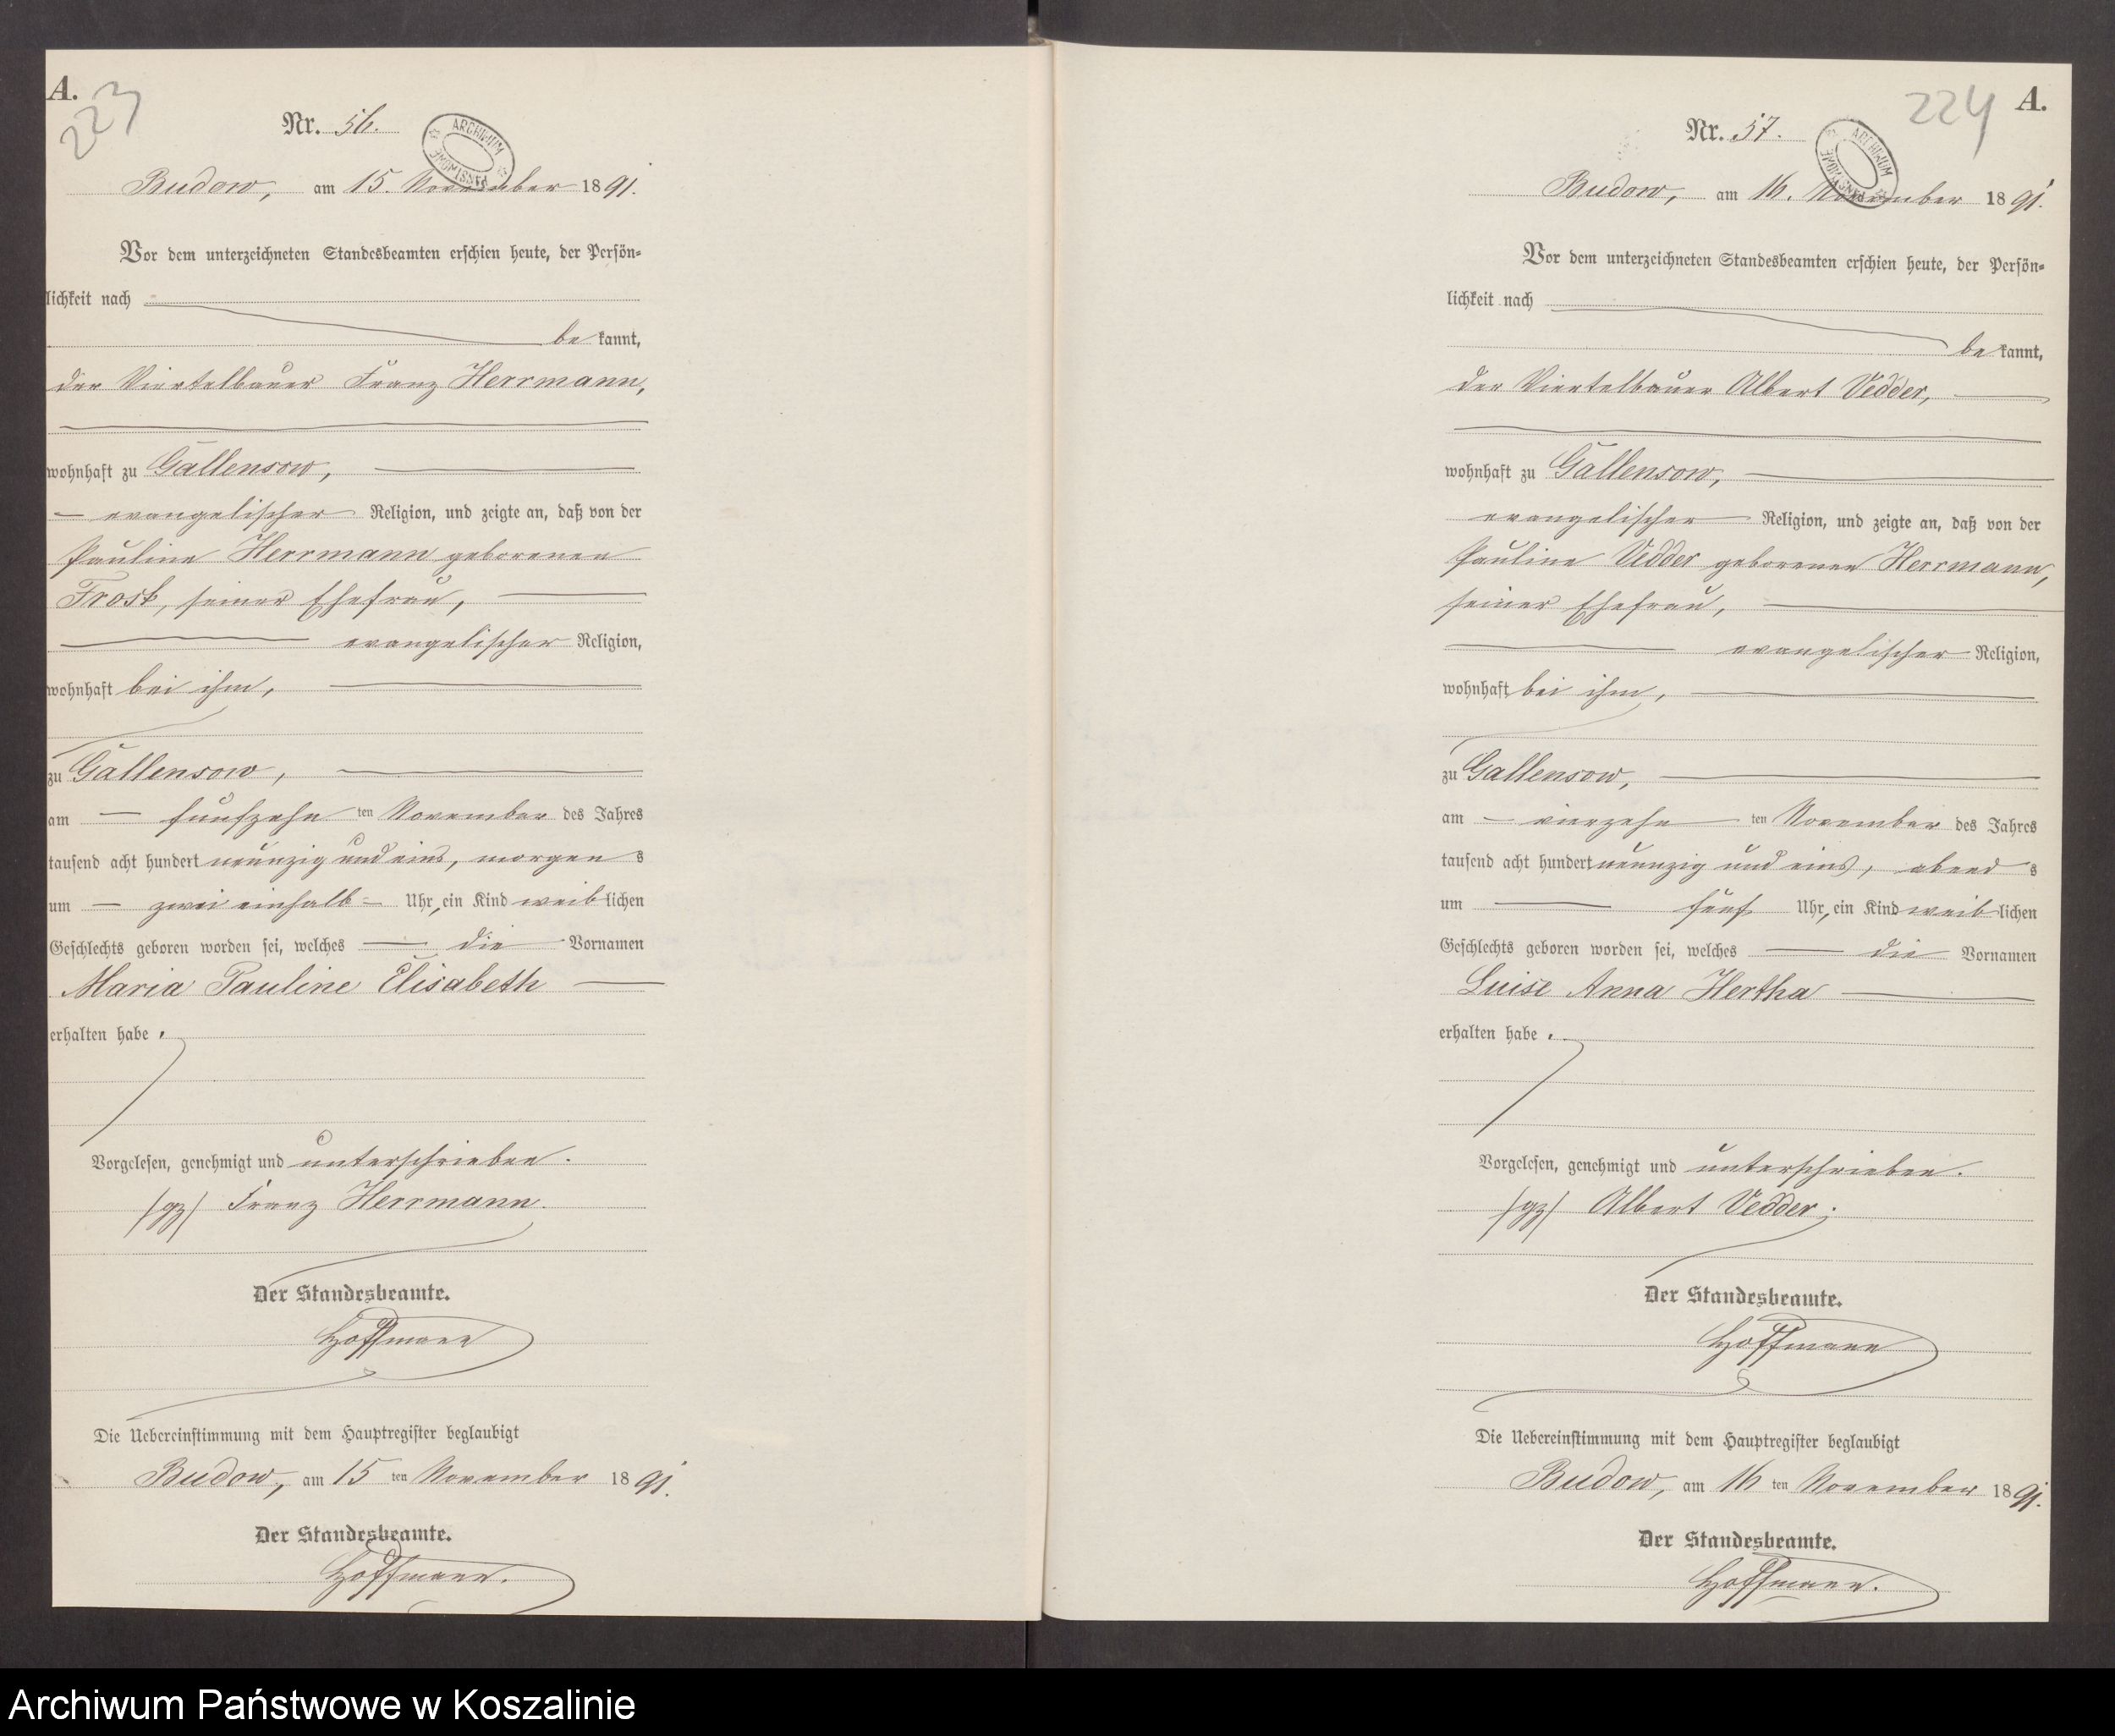 A.
223
Nr. 56.
ARCHIWUM PAŃSTWOWE
Budow, am 15. November 1891.
Vor dem unterzeichneten Standesbeamten erschien heute, der Persön=
lichkeit nach
be kannt,
der Viertelbauer Franz Herrmann,
wohnhaft zu Gallensow,
evangelischer Religion, und zeigte an, daß von der
Pauline Herrmann geborenen
Frost, seiner Ehefrau,
evangelischer Religion,
wohnhaft bei ihm,
zu Gallensow,
am fünfzehn ten November des Jahres
tausend acht hundert neunzig und eins, morgen s
um zwei einhalb Uhr, ein Kind weib lichen
Geschlechts geboren worden sei, welches die Vornamen
Maria Pauline Elisabeth
erhalten habe.
Vorgelesen, genehmigt und unterschrieben.
/gz/ Franz Herrmann.
Der Standesbeamte.
Hoffmann
Die Uebereinstimmung mit dem Hauptregister beglaubigt
Budow, am 15 ten November 1891.
Der Standesbeamte.
Hoffmann.
224
A.
Nr. 57.
ARCHIWUM PAŃSTWOWE
Budow, am 16. November 1891.
Vor dem unterzeichneten Standesbeamten erschien heute, der Persön=
lichkeit nach
be kannt,
der Viertelbauer Albert Vedder,
wohnhaft zu Gallensow,
evangelischer Religion, und zeigte an, daß von der
Pauline Vedder geborenen Herrmann,
seiner Ehefrau,
evangelischer Religion,
wohnhaft bei ihm,
zu Gallensow,
am vierzehn ten November des Jahres
tausend acht hundert neunzig und eins, abend s
um fünf Uhr, ein Kind weib lichen
Geschlechts geboren worden sei, welches die Vornamen
Luise Anna Hertha
erhalten habe.
Vorgelesen, genehmigt und unterschrieben.
/gz/ Albert Vedder.
Der Standesbeamte.
Hoffmann
Die Uebereinstimmung mit dem Hauptregister beglaubigt
Budow, am 16 ten November 1891.
Der Standesbeamte.
Hoffmann.
Archiwum Państwowe w Koszalinie